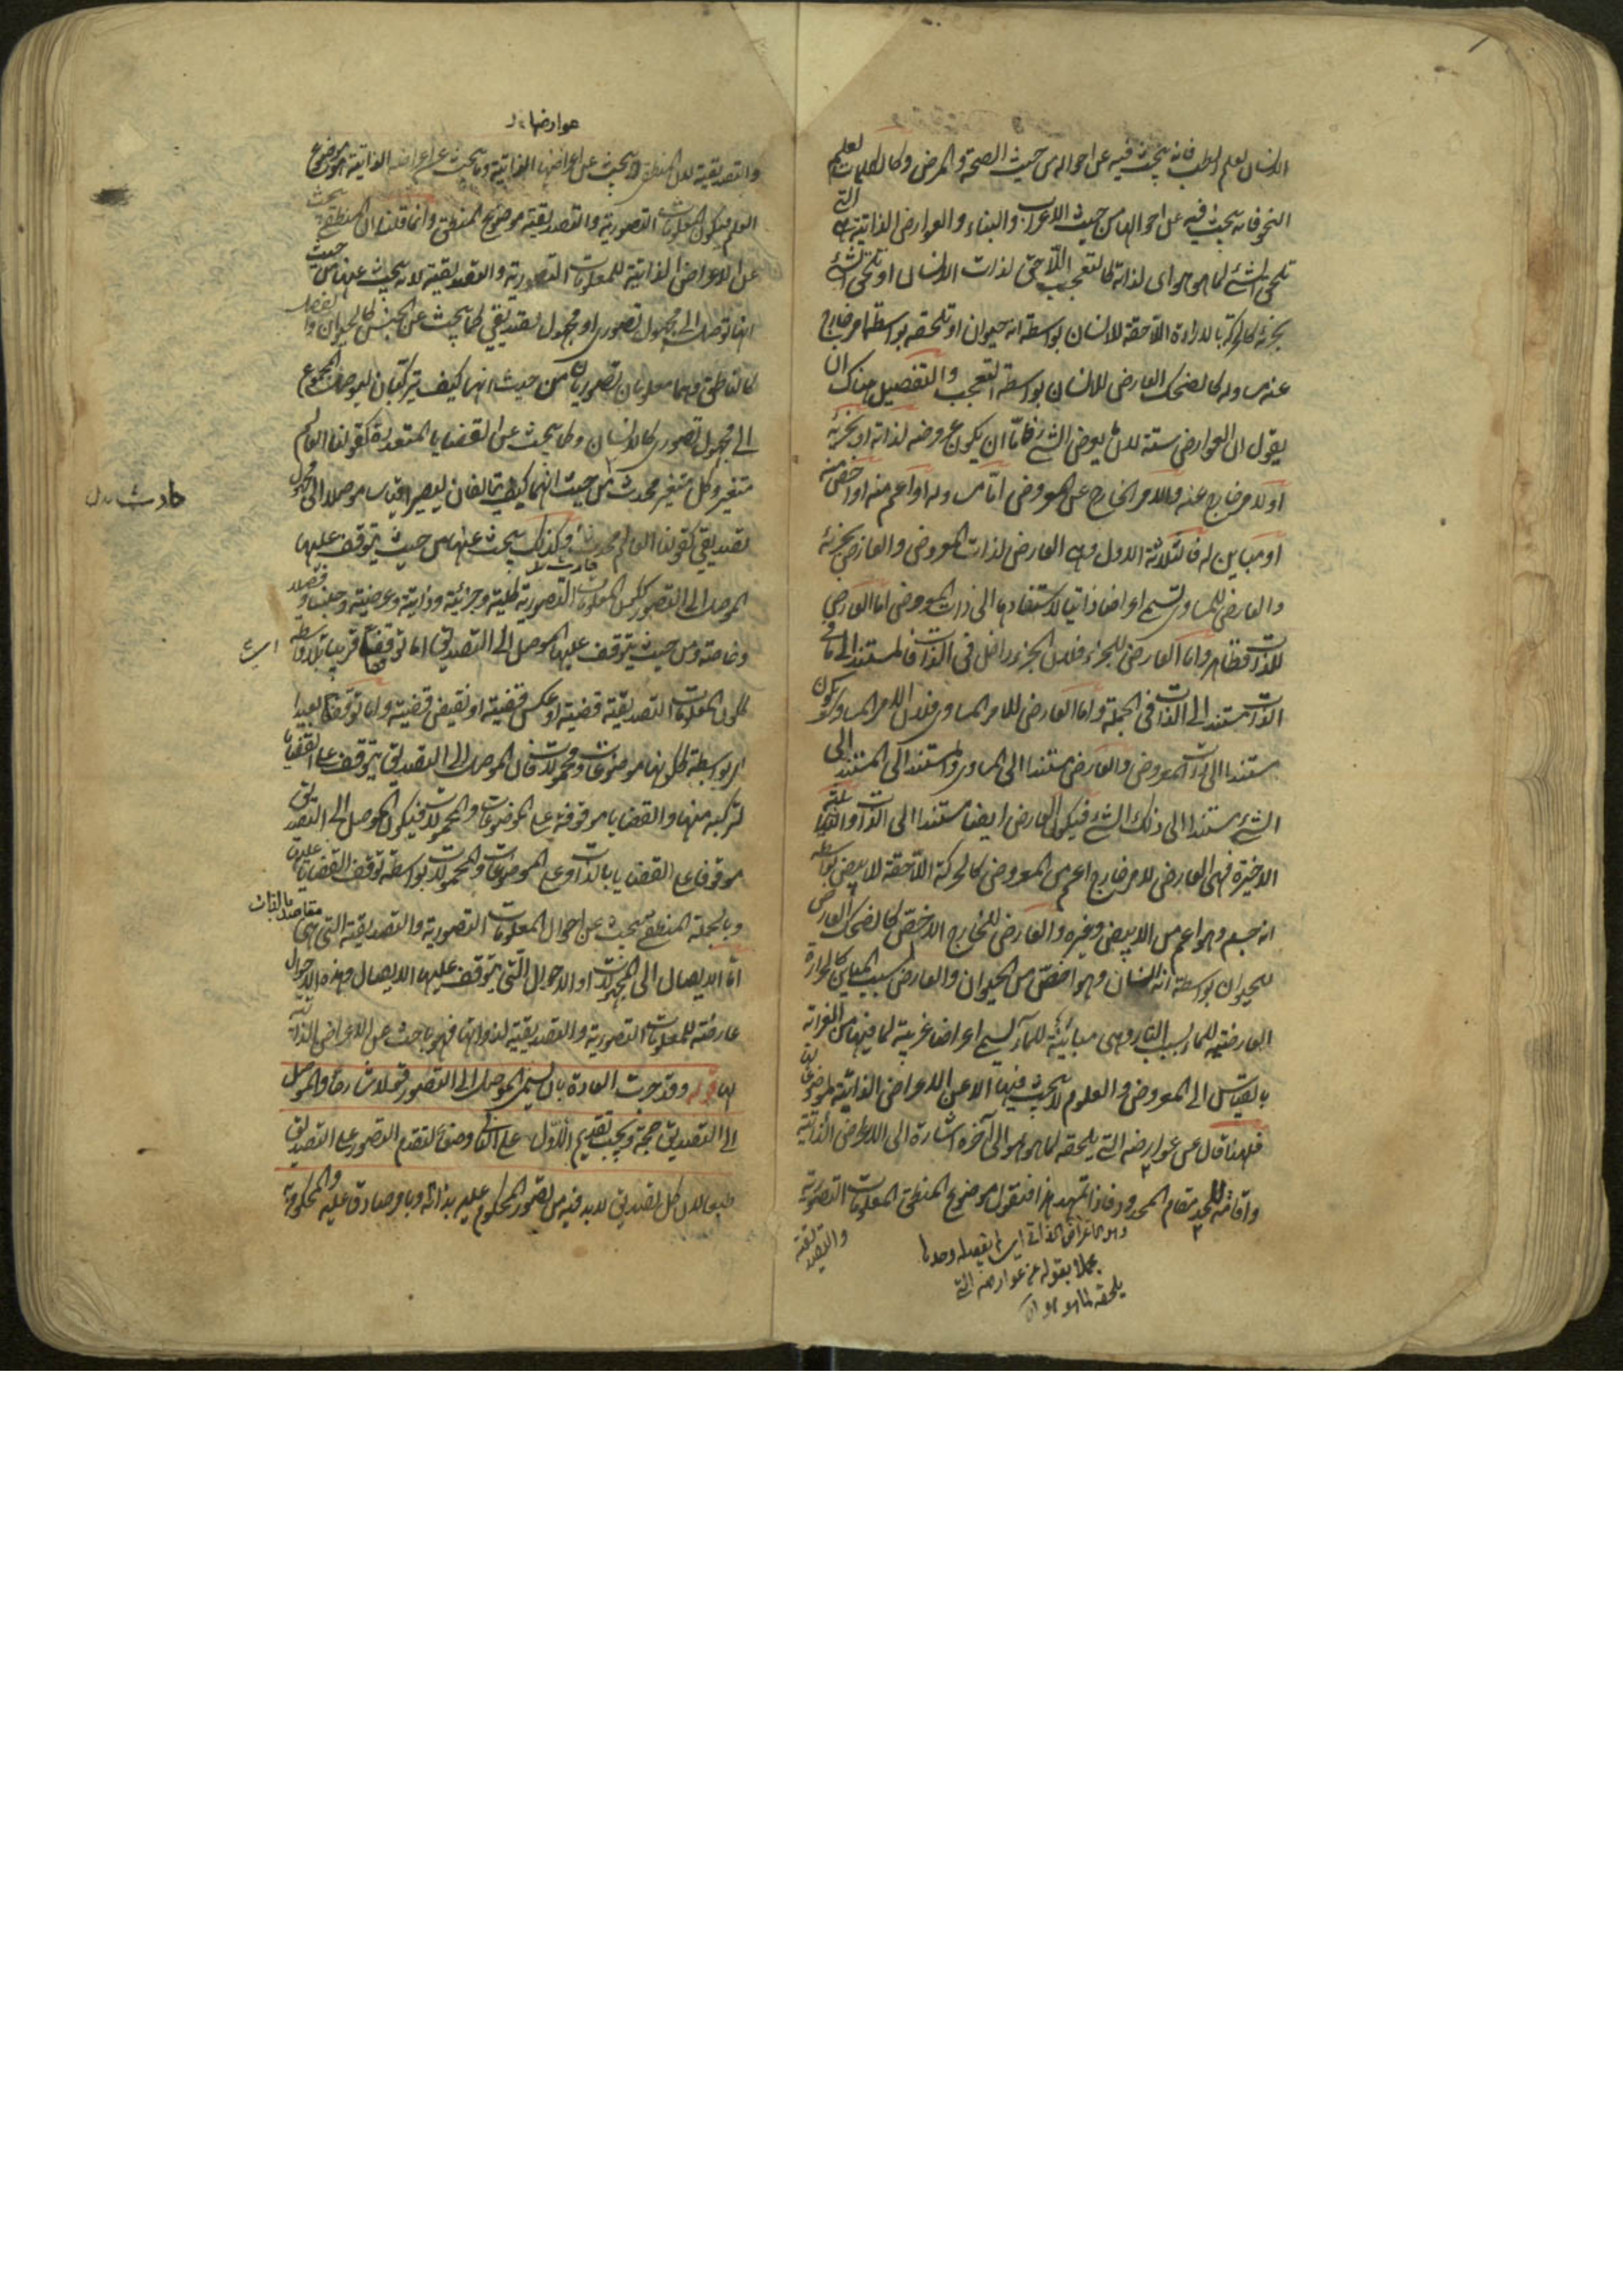 الانسان لعلم الطب فانه يبحث فيه عن احواله من حيث الصحة والمرض وكالكلمات لعلم
النحو فانه يبحث فيه عن احوالها من حيث الاعراب والبناء والعوارض الذاتية هى التى
تلحق الشئ لما هو هو اى لذاته كالتعجب اللاحق لذات الانسان او تلحق الشئ
بجزئه كالحركة بالارادة اللاحقة للانسان بواسطة انه حيوان او تلحقه بواسطة امر خارج
عنه مساو له كالضحك العارض للانسان بواسطة التعجب والتفصيل هناك ان
يقول ان العوارض ستة لان ما يعرض الشئ فامّا ان يكون عروضه لذاته او بجزئه
او لامر خارج عنه والامر الخارج عن المعروض امّا مساو له او اعم منه او اخص منه
او مباين له فالثلاثة الاول وهى العارض لذات المعروض والعارض بجزئه
والعارض للمساوى تسمى اعراضا ذاتية لاستنادها الى ذات المعروض اما العارض
للذات فظاهر وامّا العارض للجزء فلان الجزء داخل فى الذات فالمستند الى ما فى
الذات مستند الى الذات فى الجملة وامّا العارض للامر المساوى فلان الامر المساوى يكون
مستندا الى ذات المعروض والعارض مستندا الى المساوى والمستند الى المستند الى
الشئ مستند الى ذلك الشئ فيكون العارض ايضا مستندا الى الذات والثلثة
الاخيرة فهى العارض لامر خارج اعم من المعروض كالحركة اللاحقة للابيض بواسطة
انه جسم وهو اعم من الابيض وغيره والعارض للخارج الاخصّ كالضحك العارض
للحيوان بواسطة انه انسان وهو اخصّ من الحيوان والعارض بسبب المباين كالحرارة
العارضة للماء بسبب النار وهى مباينة للماء تسمى اعراضا غريبة لما فيها من الغرابة
بالقياس الى المعروض والعلوم لا يبحث فيها الا عن الاعراض الذاتية لموضوعاتها
فلهذا قال عن عوارضه التى يلحقه لما هو هو الى آخره اشارة الى الاعراض الذاتية
واقامة للحد مقام المحدود فاذا تمهد هذا فنقول موضوع المنطق المعلومات التصورية
والتصديقية
وهو الاعراض الذاتى
بقوله عن عوارضه التى
يلحقه لما هو هو
عوارضها
والتصديقية لان المنطقى يبحث عن اعراضها الذاتية وما يبحث عن اعراضه الذاتية موضوع
العلم فيكون المعلومات التصورية والتصديقية موضوع المنطق وانما قلنا ان المنطقى يبحث
عن الاعراض الذاتية للمعلومات التصورية والتصديقية لانه يبحث عنها من حيث
انها توصل الى مجهول تصورى او مجهول تصديقى كما يبحث عن الجنس كالحيوان والفصل
كالناطق وهما معلومان تصوريان من حيث انهما كيف يتركبان ليوصل المجموع
الى مجهول تصورى كالانسان وكما يبحث عن القضايا المتعددة كقولنا العالم
متغير وكل متغير محدث من حيث انهما كيف يتالفان ليصير قياسا موصلا الى مجهول
حادث بدل
تصديقى كقولنا العالم محدث وكذلك يبحث عنها من حيث يتوقف عليها
الموصل الى التصور ككون المعلومات التصورية كلية وجزئية وذاتية وعرضية وجنسا وفصلا
وخاصة ومن حيث يتوقف عليها الموصل الى التصديق اما توقفا قريبا بلا واسطة
ككون المعلومات التصديقية قضية او عكس قضية او نقيض قضية واما توقفا بعيدا
اى بواسطة ككونها موضوعات ومحمولات فان الموصل الى التصديق يتوقف على القضايا
لتركبه منها والقضايا موقوفة على الموضوعات والمحمولات فيكون الموصل الى التصديق
موقوفا على القضايا بالذات وعلى الموضوعات والمحمولات بواسطة توقف القضايا عليها
وبالجملة المنطقى يبحث عن احوال المعلومات التصورية والتصديقية التى هى
مقاصد بالذات
امّا الايصال الى المجهولات او الاحوال التى يتوقف عليها الايصال وهذه الاحوال
عارضة للمعلومات التصورية والتصديقية لذواتها فهو باحث عن الاعراض الذاتية
لها قوله وقد جرت العادة بان يسمى الموصل الى التصور قولا شارحا والموصل
الى التصديق حجة ويجب تقديم الاوّل على الثانى وضعا لتقدم التصور على التصديق
طبعا لان كل تصديق لا بد فيه من تصور المحكوم عليه بذاته او بامر صادق عليه والمحكوم به